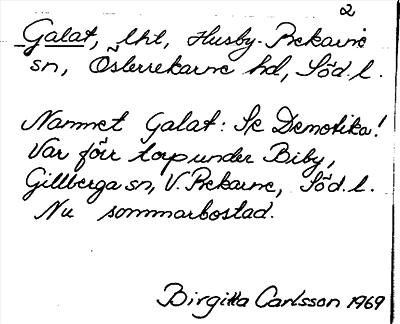 2
Galat, lht, Husby-Rekarne
sn, Österrekarne hd, Söd. l.
Namnet Galat: Se Demotika!
Var förr torp under Biby,
Gillberga sn, V. Rekarne, Söd. l.
Nu sommarbostad.
Birgitta Carlsson 1969